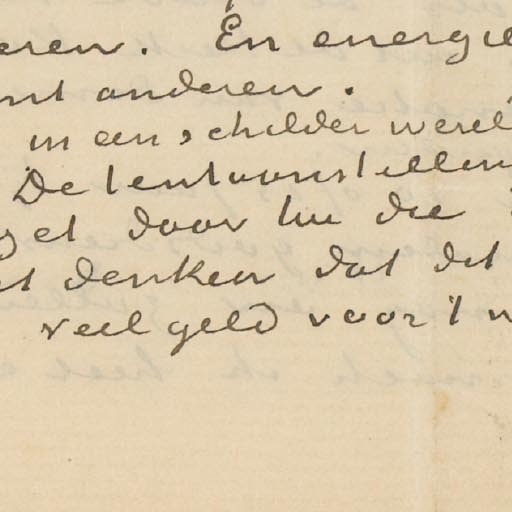 eren. En energie
nt anderen.
in een schilder werel
De tentoonstellin
get door hu die
et denken dat dit
veel geld voor 't w